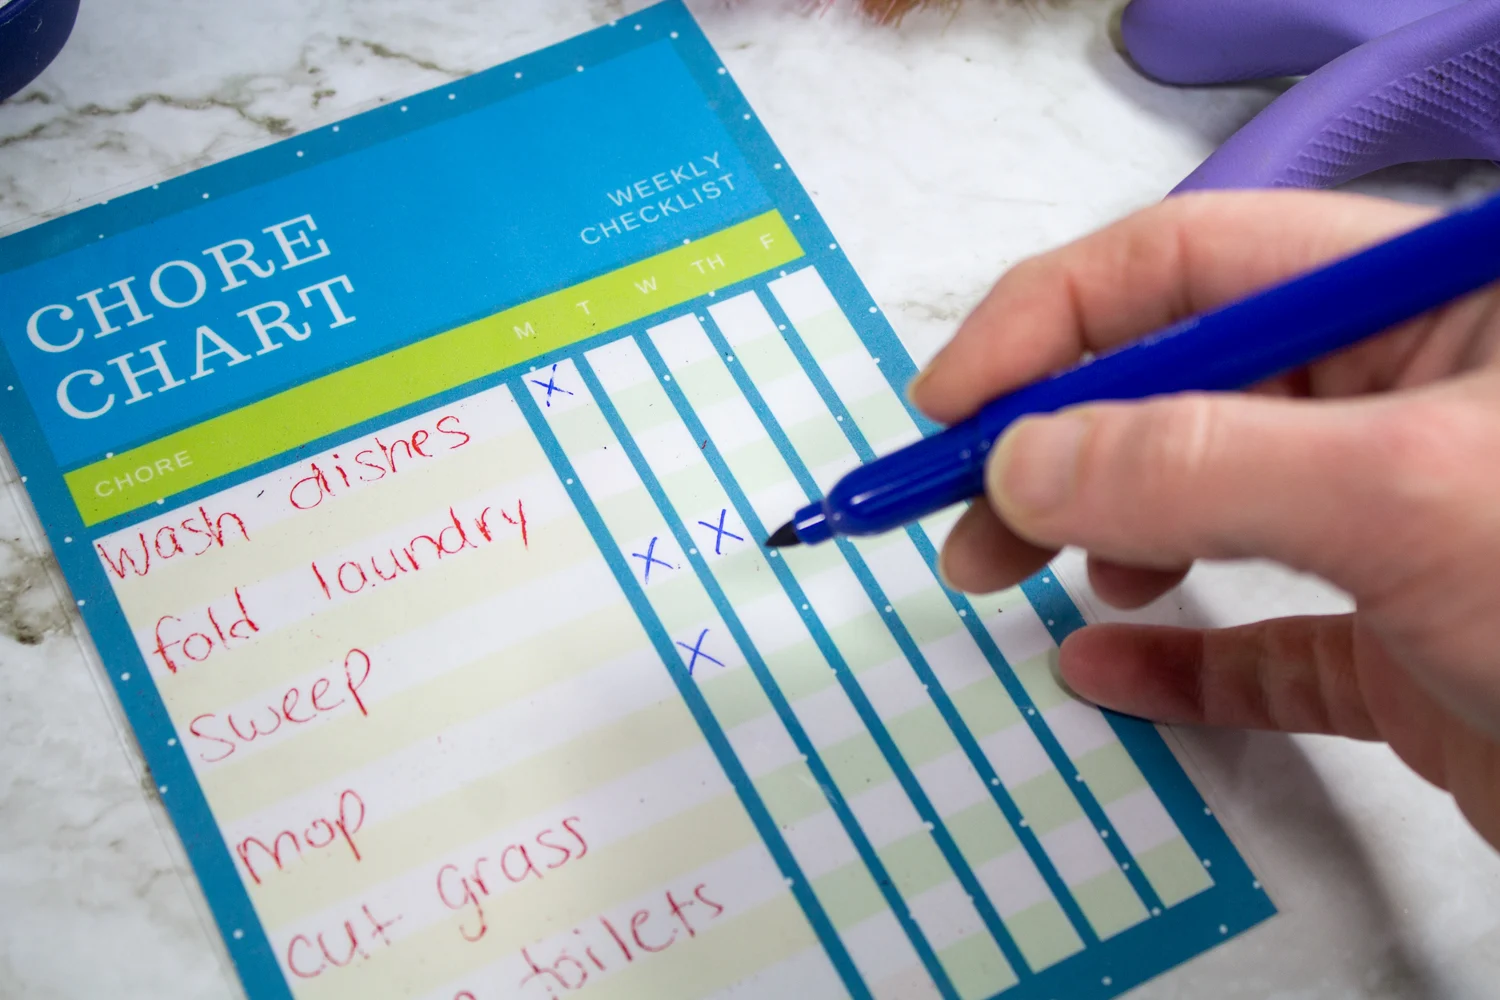 CHORE
CHART
WEEKLY
CHECKLIST
CHORE M T W TH F
wash dishes X
fold laundry
sweep X X
mop X
cut grass
toilets